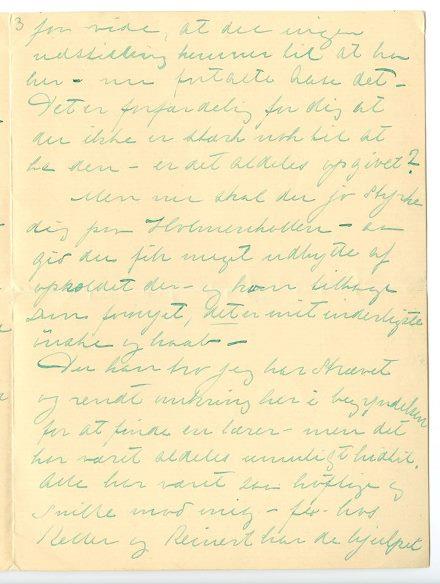 3
fon vide, at der ingen
udstilling kommer til at ha
her - nu fortalte Aase det -
Det er forfærdelig for dig at
du ikke er stærk nok til at
ha den - er det aldeles opgivet?
Men nu skal du jo styrke
dig paa Holmenkollen - aa
gid du fik meget udbytte af
opholdet der - og kom tilbage
som fornyet, det er mit inderligste
ønske og haab -
Du kan tro jeg har strævet
og rendt omkring her i begyndelsen
for at finde en lærer - men det
har været aldeles umuligt hidtil.
Alle har været saa høflige og
snille mod mig - hos
Keller og Reinert har de hjulpet